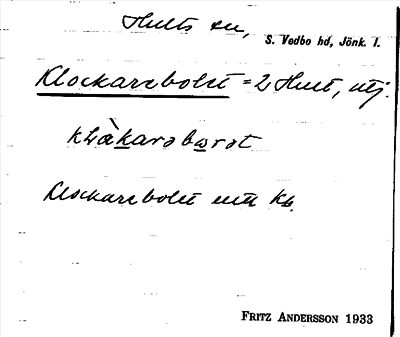 Hults sn,
S. Vedbo hd, Jönk. l.
Klockarebolet = 2 Hult, utj.
klàkarəbωrət
Klockarebolet
FRITZ ANDERSSON 1933